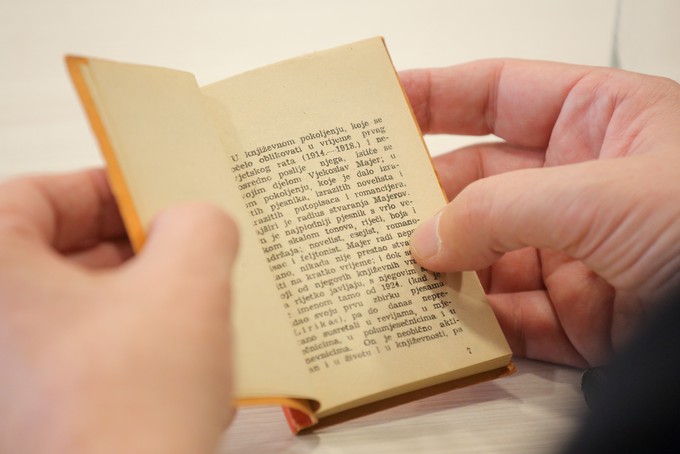 U književnom pokoljenju, koje se
očelo oblikovati u vrijeme prvog
jetskog rata (1914.—1918.) i ne-
osredno poslije njega, ističe se
vojim djelom Vjekoslav Majer; u
om pokoljenju, koje je dalo izra-
itih pjesnika, izrazitih novelista i
izrazitih putopisaca i romancijera,
ajširi je radius stvaranja Majerov.
n je najplodniji pjesnik s vrlo ve-
kom skalom tonova, riječi, boja i
adržaja; novelist, esejist, romano-
isac i feljtonist. Majer radi nepre
ano, nikada nije prestao stva
iti na kratko vrijeme; i dok s
oji od njegovih književnih vr
a rijetko javljaju, s njegovim
imenom tamo od 1924. (kad je
dao svoju prvu zbirku pjesama
Lirika), pa do danas nepre-
ano susretali u revijama, u mje-
ečnicima, u polumjesečnicima i u
nevnicima. On je neobično akti-
an i u životu i u književnosti, pa
7